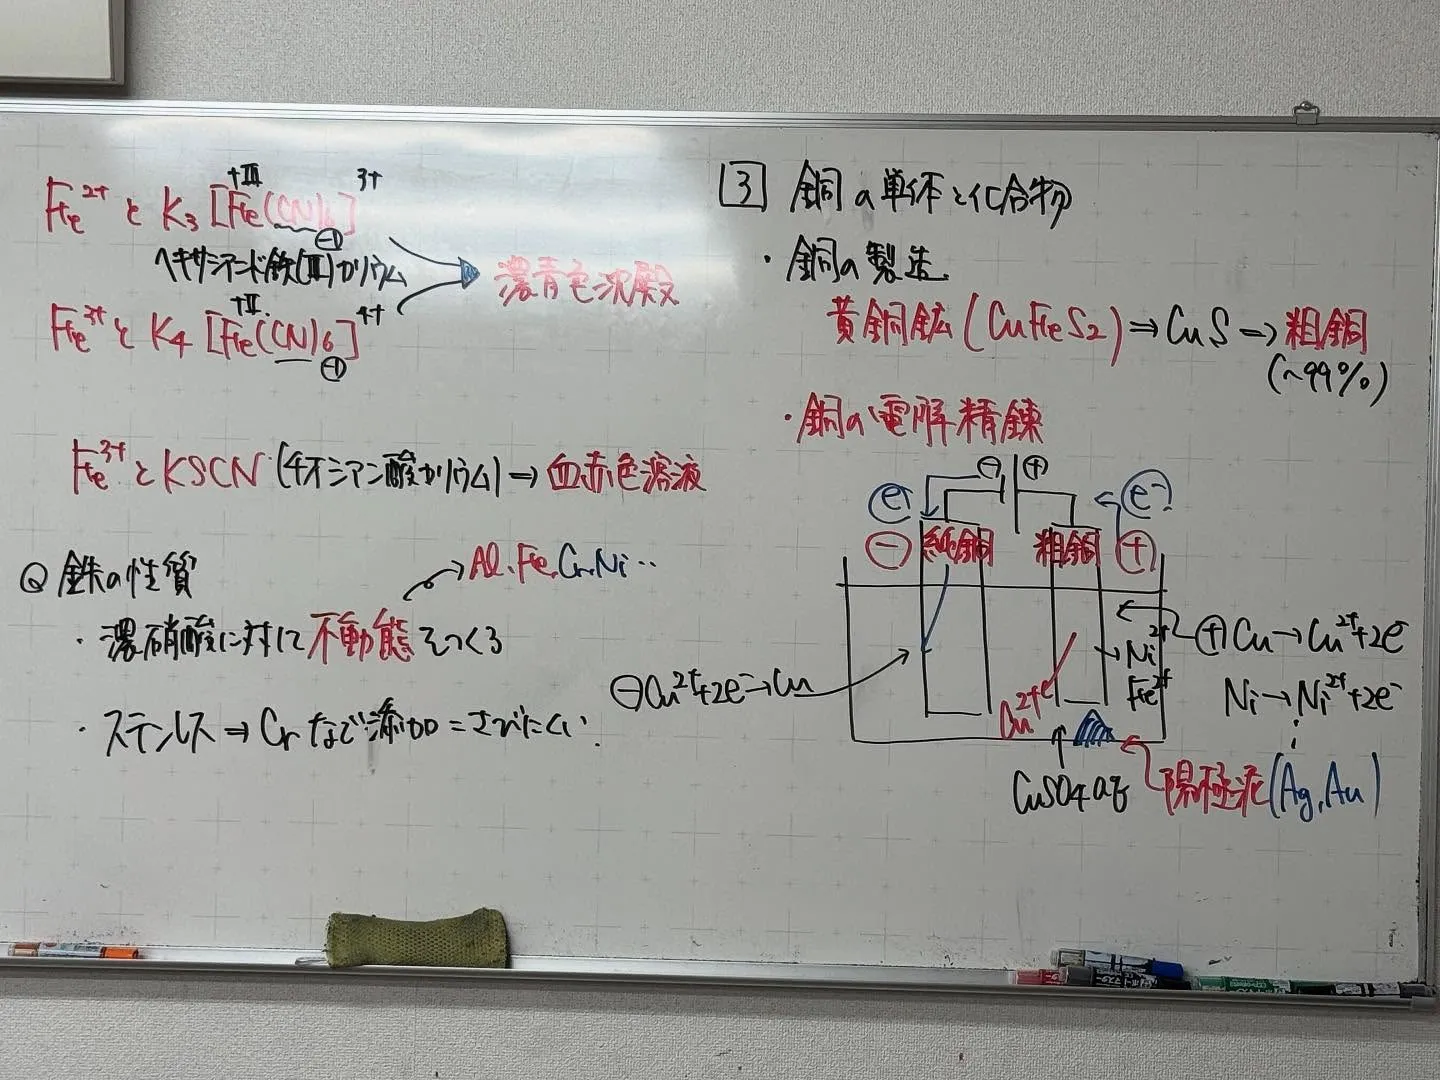 Fe²⁺ と K₃[Fe(CN)₆]³⁺
+Ⅲ
⊖1
ヘキサシアニド鉄(Ⅲ)カリウム
濃青色沈殿
+Ⅱ
Fe³⁺ と K₄[Fe(CN)₆]⁴⁺
⊖1
Fe³⁺ と KSCN (チオシアン酸カリウム) → 血赤色溶液
◎ 鉄の性質
Al、Fe、Cr、Ni‥
・濃硝酸に対して不動態をつくる
・ステンレス ⇒ Crなど添加 = さびにくい.
3 銅の単体と化合物
・銅の製造
黄銅鉱 (CuFeS2) ⇒ CuS → 粗銅
(~99%)
・銅の電解精錬
⊖ ⊕
e⁻ e⁻
⊖ 純銅 粗銅 ⊕
⊖ Cu²⁺+2e⁻→Cu
Cu²⁺
→Ni²⁺
Fe²⁺
⊕ Cu → Cu²⁺+2e⁻
Ni → Ni²⁺+2e⁻
CuSO4aq
陽極泥 (Ag, Au)